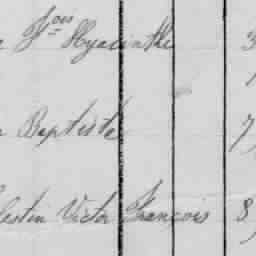 Fois Hyacinthe 3
Baptiste 7
lestin Victor Francois 8